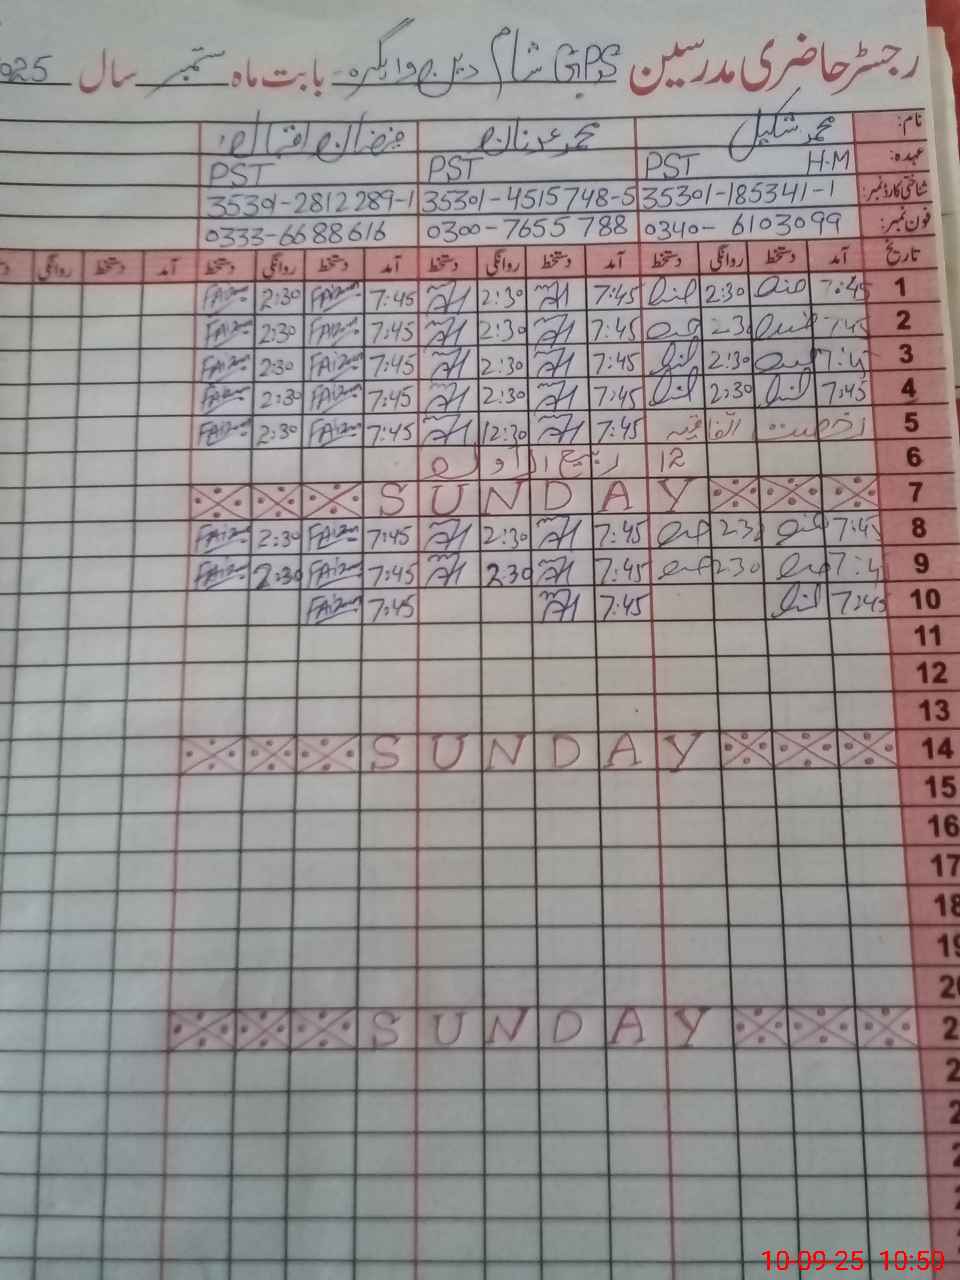 رجسٹر حاضری مدرسین GPS شام دین بابت ماہ ستمبر سال 025
نام: محمد شکیل محمد عدنان فیضان اقبال
عہدہ: H.M PST PST PST
شناختی کارڈ نمبر: 35301-185341-1 35301-4515748-5 35301-2812289-1
فون نمبر: 0340-6103099 0300-7655788 0333-6688616
تاریخ آمد دستخط روانگی دستخط آمد دستخط روانگی دستخط آمد دستخط روانگی دستخط آمد دستخط روانگی
1 7:45 2:30 7:45 2:30 7:45 FAizan 2:30 FAizan
2 7:45 2:3 7:45 2:30 7:45 FAizan 2:30 FAizan
3 7:4 2:30 7:45 2:30 7:45 FAizan 2:30 FAizan
4 7:45 2:30 7:45 2:30 7:45 FAizan 2:30 FAizan
5 رخصت اتفاقیہ 7:45 12:30 7:45 FAizan 2:30 FAizan
6 12 ربیع الاول
7 SUNDAY
8 7:45 2:3 7:45 2:30 7:45 FAizan 2:30 FAizan
9 7:4 2:30 7:45 2:30 7:45 FAizan 2:30 FAizan
10 7:45 7:45 7:45 FAizan
11
12
13
14 SUNDAY
15
16
17
18
19
20
2 SUNDAY
2
2
2
2
2
10-09-25 10:59